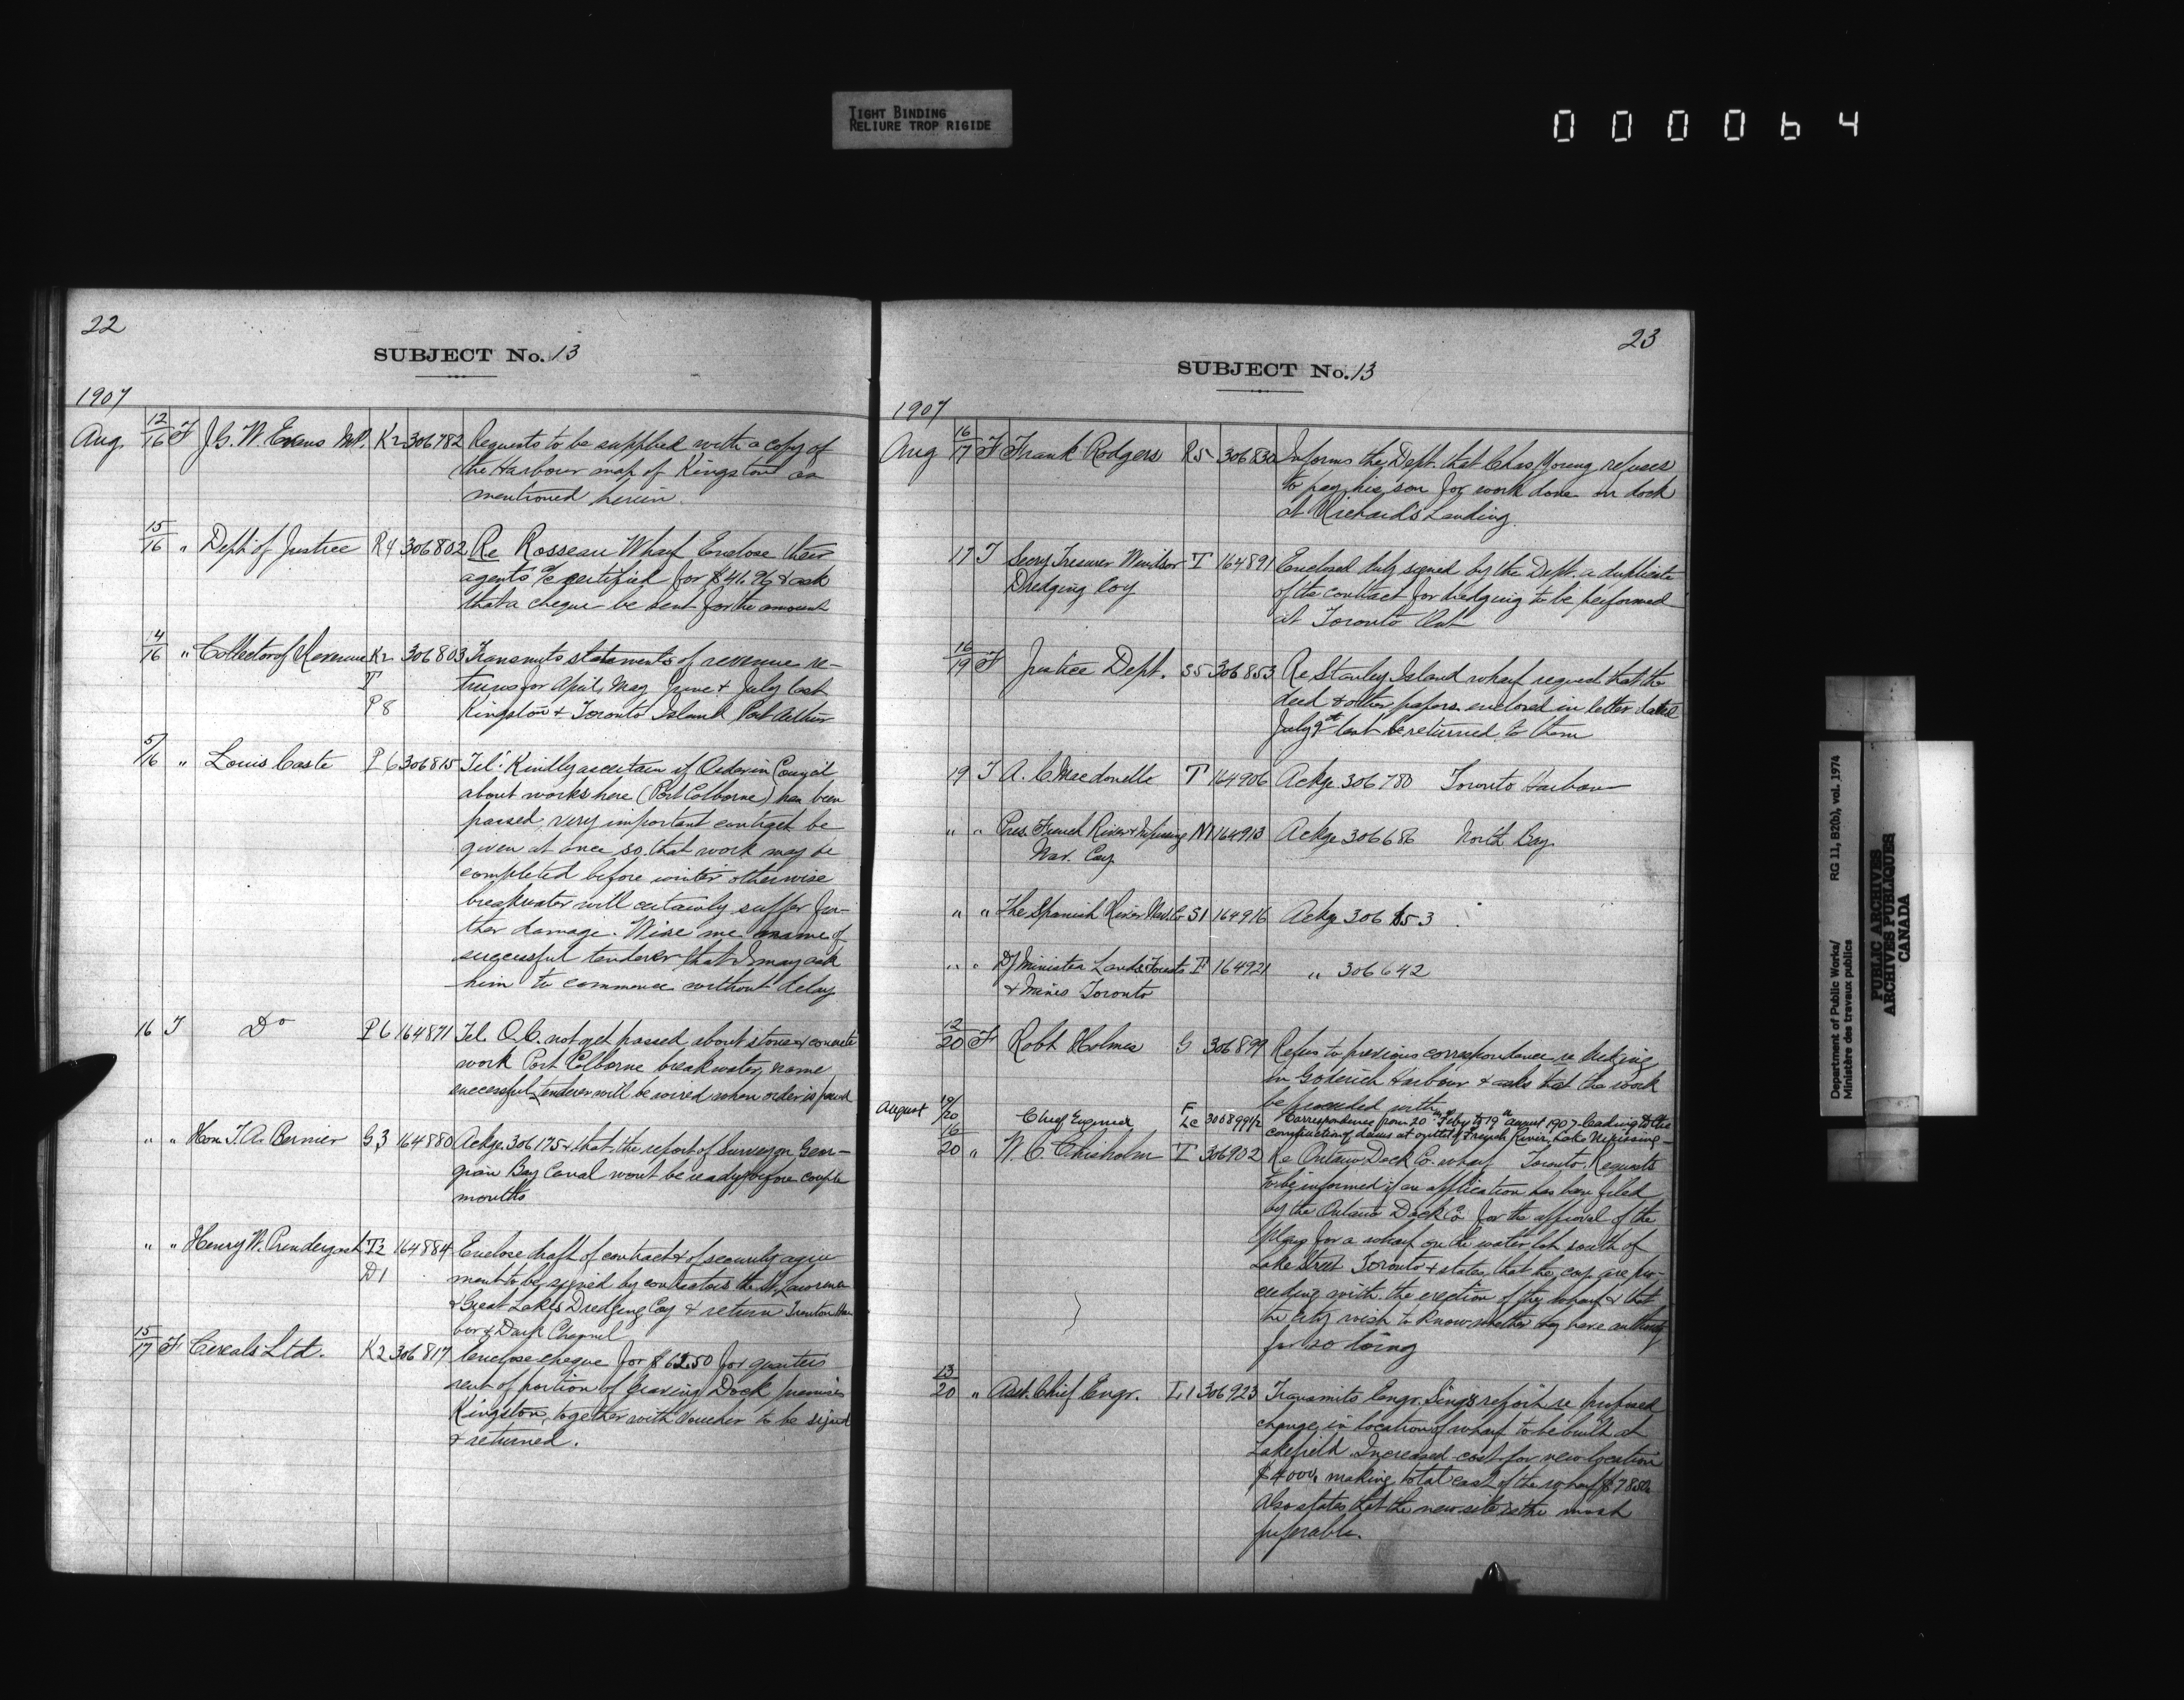 TIGHT BINDING
RELIURE TROP RIGIDE
000064
22
SUBJECT No. 13
1907
Aug. 12/16 F J. G. W. Evans M.P. K2 306782 Requests to be supplied with a copy of
the Harbour map of Kingston as
mentioned herein.
15/16 " Dept. of Justice R4 306802 Re Rosseau Wharf Enclose their
agents a/c certified for $41.96 & ask
that a cheque be sent for the amount
14/16 " Collector of Revenue K2 306803 Transmits statements of revenue re-
T turns for April, May June & July last
P8 Kingston & Toronto Island Port Arthur
5/16 " Louis Coste P6 306815 Tel. Kindly ascertain if Order in Council
about works here (Port Colborne) has been
passed, very important contract be
given at once so that work may be
completed before winter otherwise
breakwater will certainly suffer fur-
ther damage. Wire me name of
successful tenderer that I may ask
him to commence without delay
16 T Do P6 164871 Tel. O.C. not yet passed about stone & concrete
work Port Colborne breakwater, name
successful tenderer will be wired when order is passed
" " Hon. T. A. Bernier G3 164880 Ackge. 306175 & that the report of Surveyor Geor-
gian Bay Canal won't be ready before couple
months
" " Henry W. Prendergast T2 164884 Enclose draft of contract & of security agree
D1 ment to be signed by contractors the St. Lawrence
& Great Lakes Dredging Coy & return Trenton Har
bor & Dark Channel
15/17 F Cereals Ltd. K2 306817 Enclose cheque for $62.50 for quarters
rent of portion of Graving Dock premises
Kingston, together with voucher to be signed
& returned.
23
SUBJECT No. 13
1907
Aug 16/17 F Frank Rodgers R5 306830 Informs the Dept. that Chas Young refuses
to pay his son for work done on dock
at Richard's Landing.
17 T Secry Tresurer Windsor T 164891 Enclosed duly signed by the Dept. a duplicate
Dredging Coy of the contract for dredging to be performed
at Toronto Ont
16/19 F Justice Dept. S5 306853 Re Stanley Island wharf request that the
deed & other papers enclosed in letter dated
July 9th last be returned to them
19 T A. C. Macdonell T 164906 Ackge 306780 Toronto Harbour
" " Pres. French River & Nipissing N1 164913 Ackge 306686 North Bay
Nav. Coy.
" " The Spanish River Nav. Co S1 164916 Ackge 306 53
" " D/ Minister Lands Forests F 164921 " 306642
& Mines Toronto
12/20 F Robt Holmes G 306899 Refers to previous correspondence re dredging
in Goderich Harbour & asks that the work
be proceeded with
August 19/20 Chief Engineer F Le 306899 1/2 Correspondence from 20th Feby to 19th August 1907 leading to the
construction of dams at outlet of French River, Lake Nipissing—
16/20 " W. C. Chisholm T 306902 Re Ontario Dock Co. wharf Toronto. Requests
to be informed if an application has been filed
by the Ontario Dock Co for the approval of the
plans for a wharf on the water lot south of
Lake Street Toronto & states that the coy are pro-
ceeding with the erection of the wharf & that
the City wish to know whether they have authority
for so doing
13/20 " Asst. Chief Engr. L1 306923 Transmits Engr. Sing's report re proposed
change in location of wharf to be built at
Lakefield. Increased cost for new location
$4000, making total cost of the wharf $7850
Also states that the new site is the most
preferable.
Department of Public Works/ RG 11, B2(b), vol. 1974
Ministère des travaux publics
PUBLIC ARCHIVES
ARCHIVES PUBLIQUES
CANADA